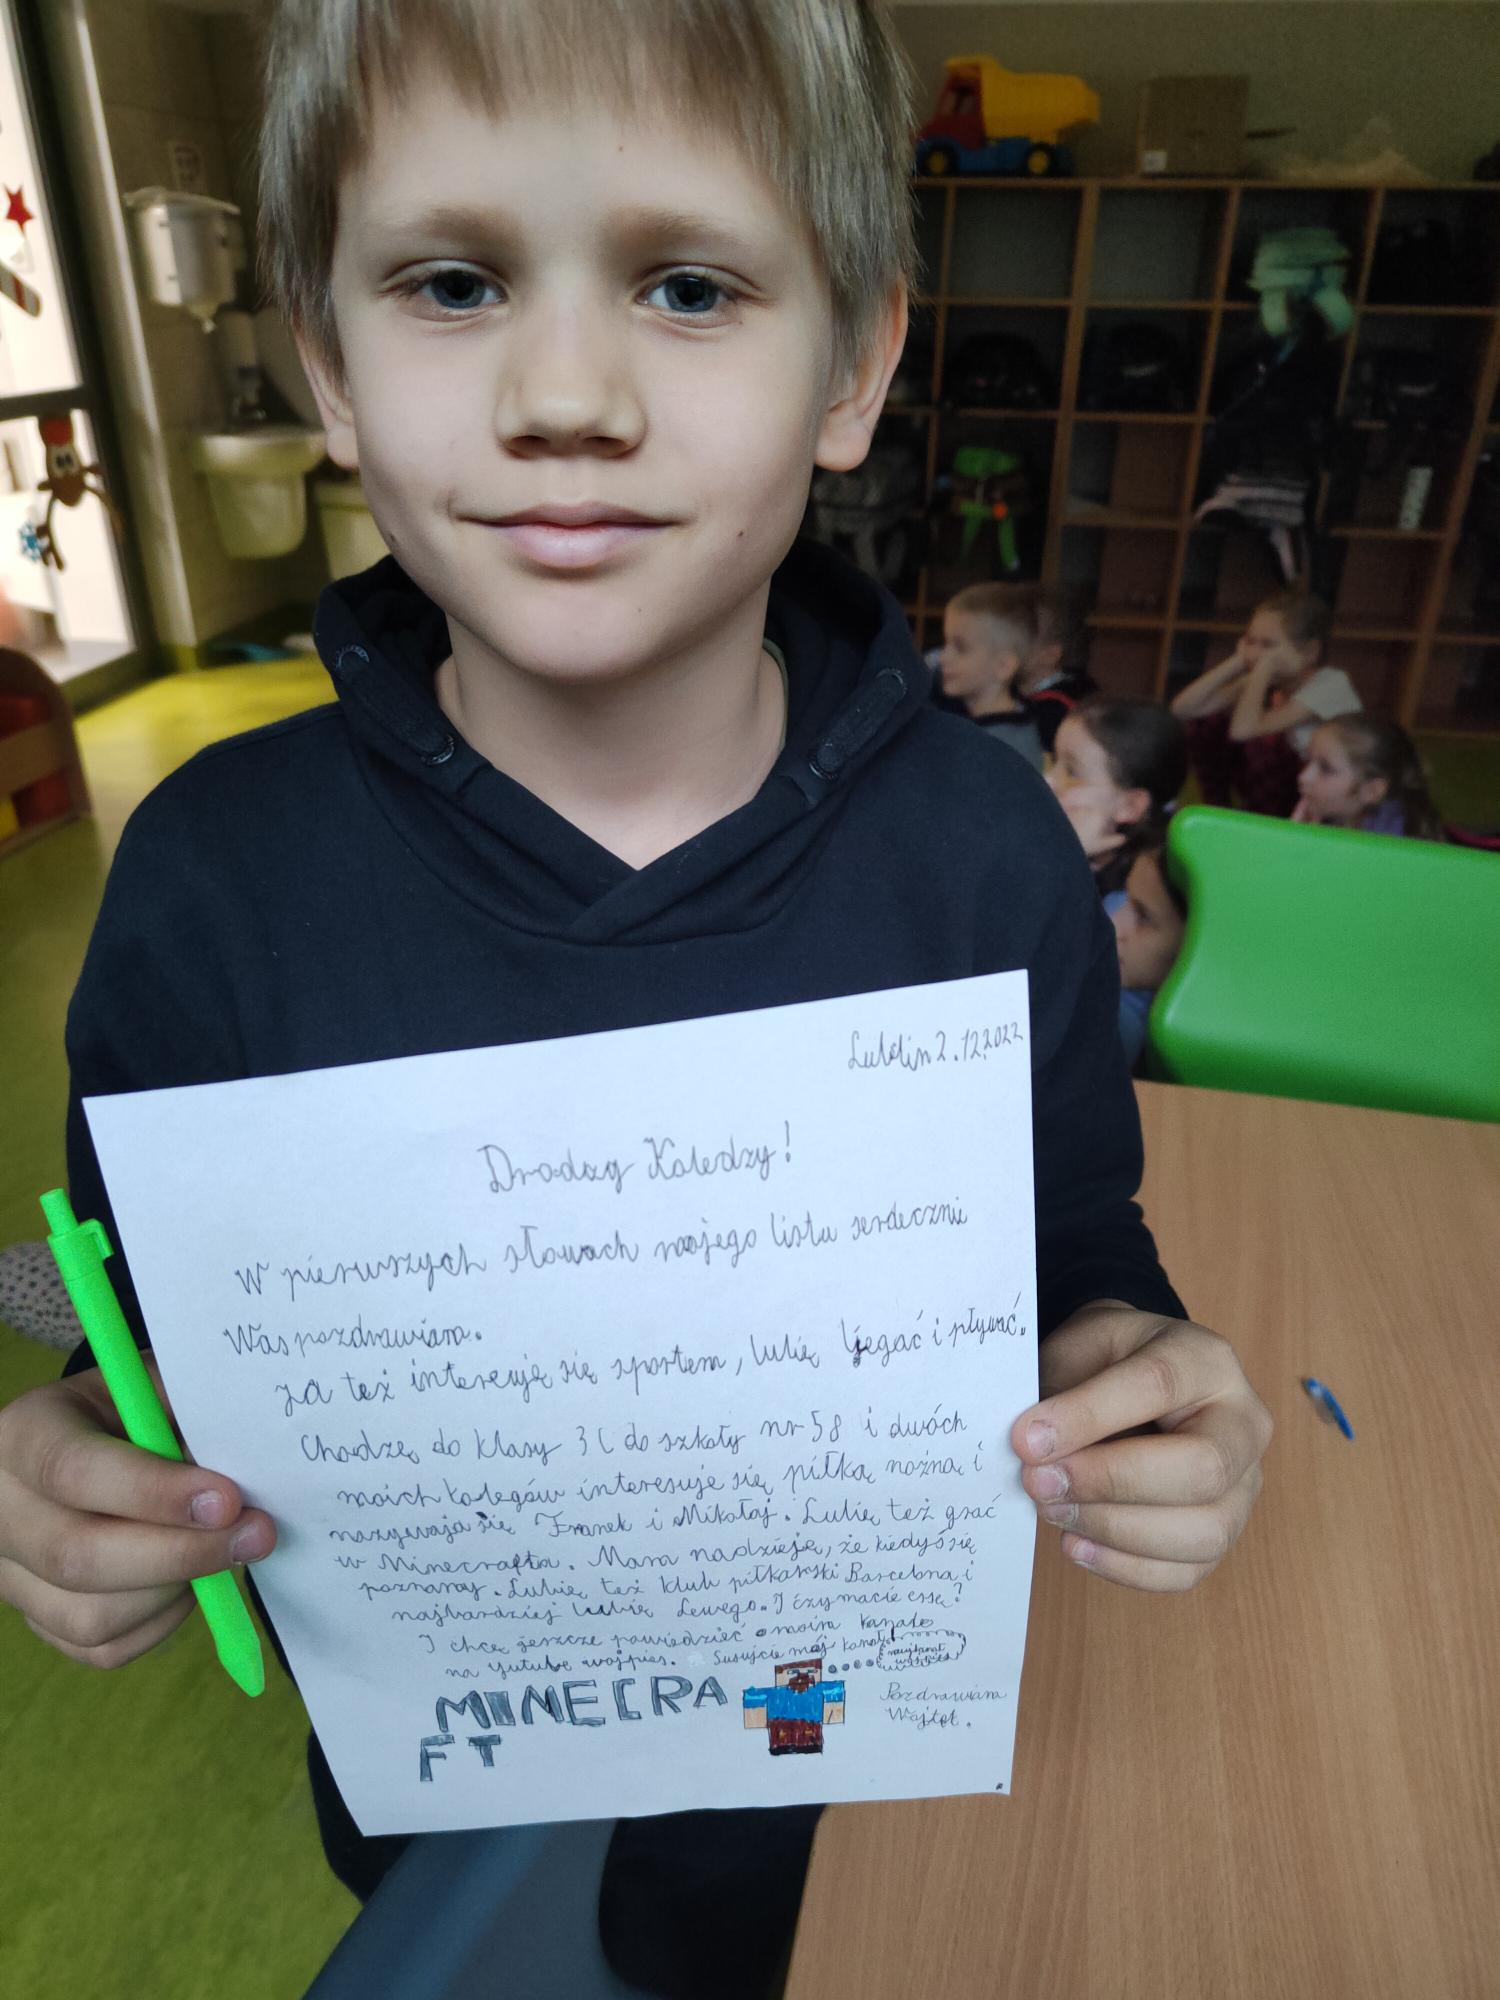 Lublin 2.12.2022
Drodzy Koledzy!
W pierwszych słowach mojego listu serdecznie
Was pozdrawiam.
Ja też interesuję się sportem, lubię biegać i pływać.
Chodzę do klasy 3 C do szkoły nr 58 i dwóch
moich kolegów interesuje się piłką nożną i
nazywają się Franek i Mikołaj. Lubię też grać
w Minecrafta. Mam nadzieję, że kiedyś się
poznamy. Lubię też klub piłkarski Barcelona i
najbardziej lubię Lewego. I czy macie
I chcę jeszcze powiedzieć o moim kanale
na yutube wojpies. Susujcie mój kanał
mój kanał
wojpies
MINECRA
FT
Pozdrawiam
Wojtek.